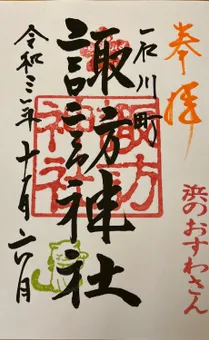 奉拝
浜のおすわさん
石川町
諏訪神社
諏訪神社
令和三年十一月六日